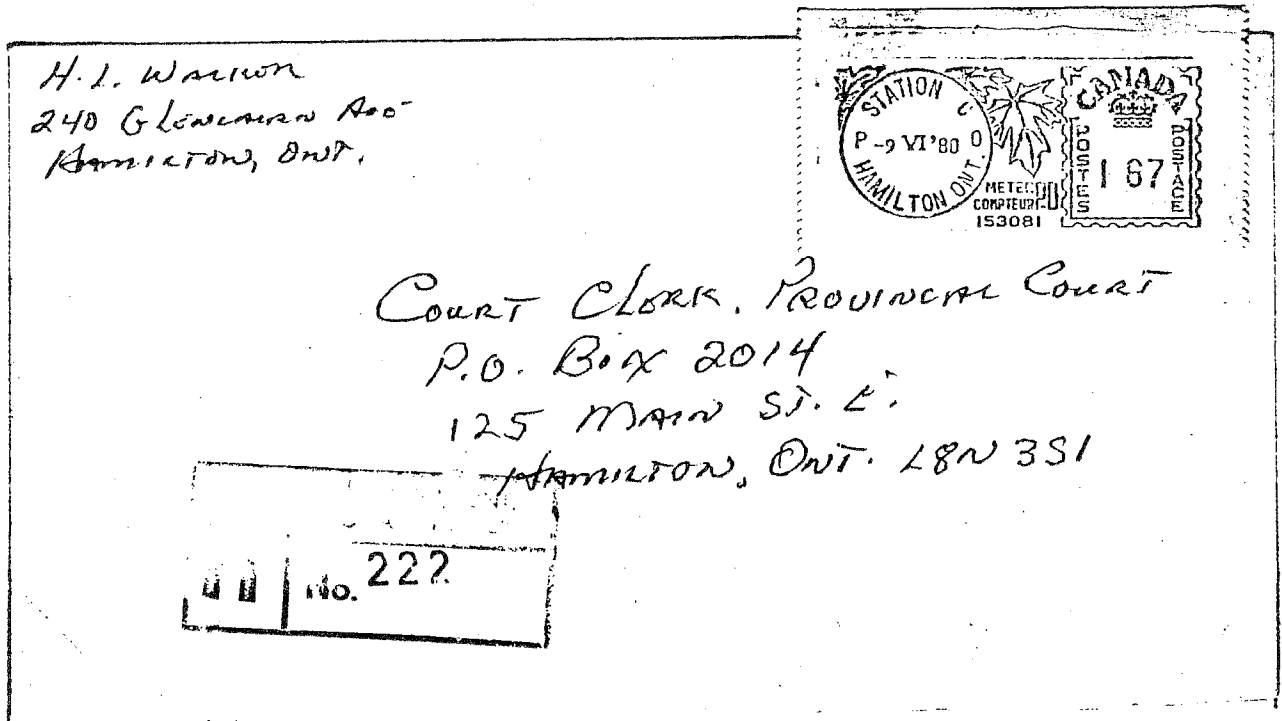 H. L. Walton
240 Glencairn Ave
Hamilton, Ont.
STATION C
P -9 VI '80 0
HAMILTON ONT.
METER
COMPTEUR
153081
CANADA
POSTES
1 67
POSTAGE
Court Clerk. Provincial Court
P.O. Box 2014
125 Main St. E.
Hamilton, Ont. L8N 3S1
No. 222